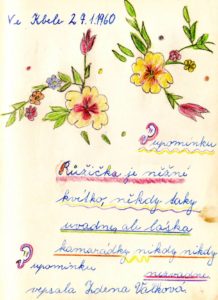 Ve Kbele 27.1.1960
Upomínku
Růžička je něžné
kvítko, někdy taky
uvadne ale láska
kamarádky nikdy nikdy
neuvadne
Upomínku
vepsala Zdena Vaľková.